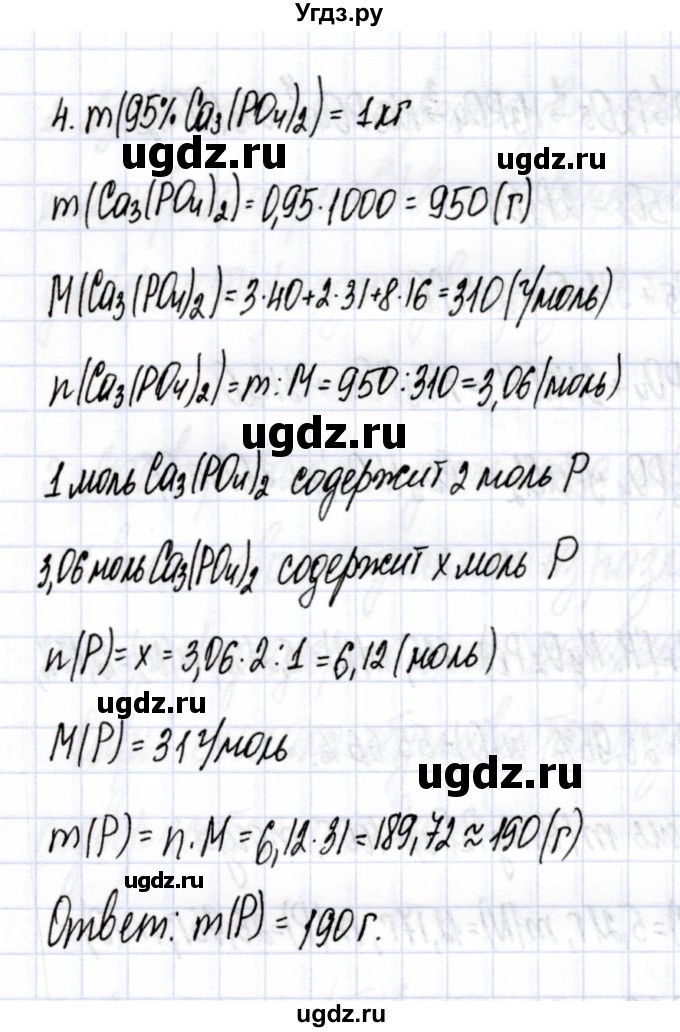 Угдз.ру
4. m(95% Ca₃(PO₄)₂) = 1 кг
ugdz.ru
ugdz.ru
m(Ca₃(PO₄)₂) = 0,95·1000 = 950 (г)
M(Ca₃(PO₄)₂) = 3·40+2·31+8·16 = 310 (г/моль)
n(Ca₃(PO₄)₂) = m : M = 950 : 310 = 3,06 (моль)
ugdz.ru
1 моль Ca₃(PO₄)₂ содержит 2 моль P
3,06 моль Ca₃(PO₄)₂ содержит x моль P
n(P) = x = 3,06·2 : 1 = 6,12 (моль)
ugdz.ru
M(P) = 31 г/моль
ugdz.ru
m(P) = n·M = 6,12·31 = 189,72 ≈ 190 (г)
ugdz.ru
Ответ: m(P) = 190 г.
ugdz.ru